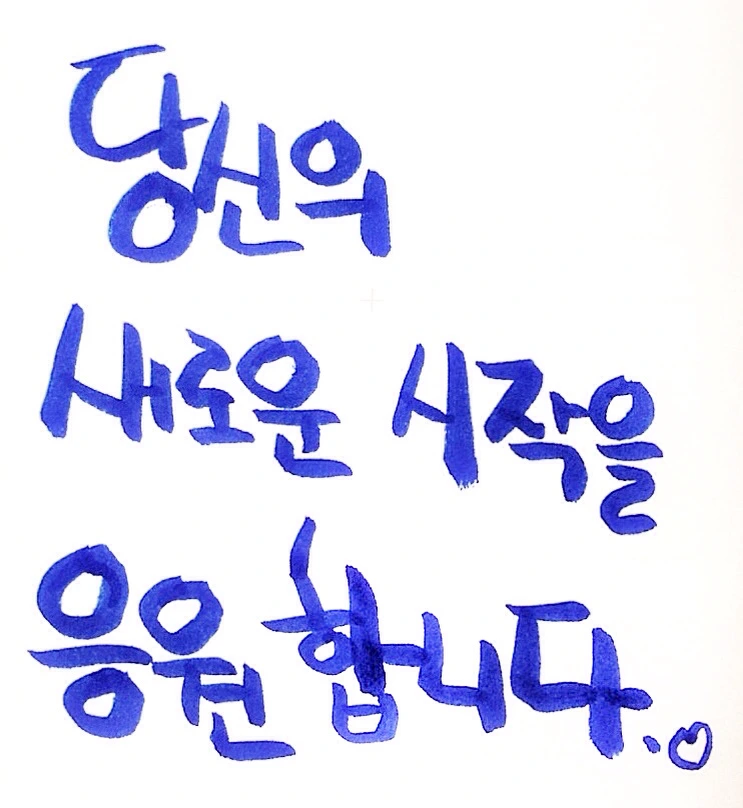 당신의
새로운 시작을
응원합니다.♡